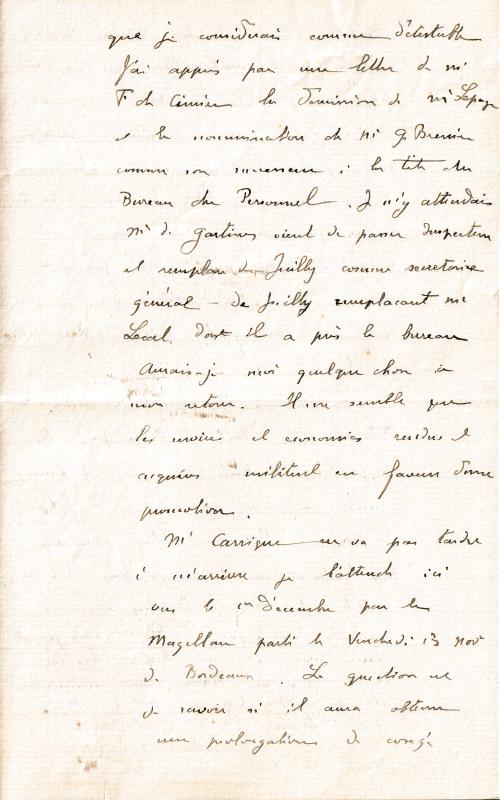 que je considérais comme détestable
J'ai appris par une lettre de Mr
F. de la démission de Mr Lepage
et la nomination de Mr G. Bremier
comme son successeur à la tête du
Bureau du Personnel. J'm'y attendais
Mr de Gastines vient de passer Inspecteur
et remplace de Juilly comme secrétaire
général - de Juilly remplaçant Mr
Lecal dont il a pris le bureau
Aurais-je moi quelque chose à
mon retour. Il me semble que
les services et économies rendus et
acquérées militent en faveur d'une
promotion.
Mr Carrique ne va pas tarder
à m'arriver je l'attends ici
vers le 1er décembre par le
Magellan parti le Vendredi 13 Nov
de Bordeaux. La question est
de savoir si il aura obtenu
une prolongation de congé